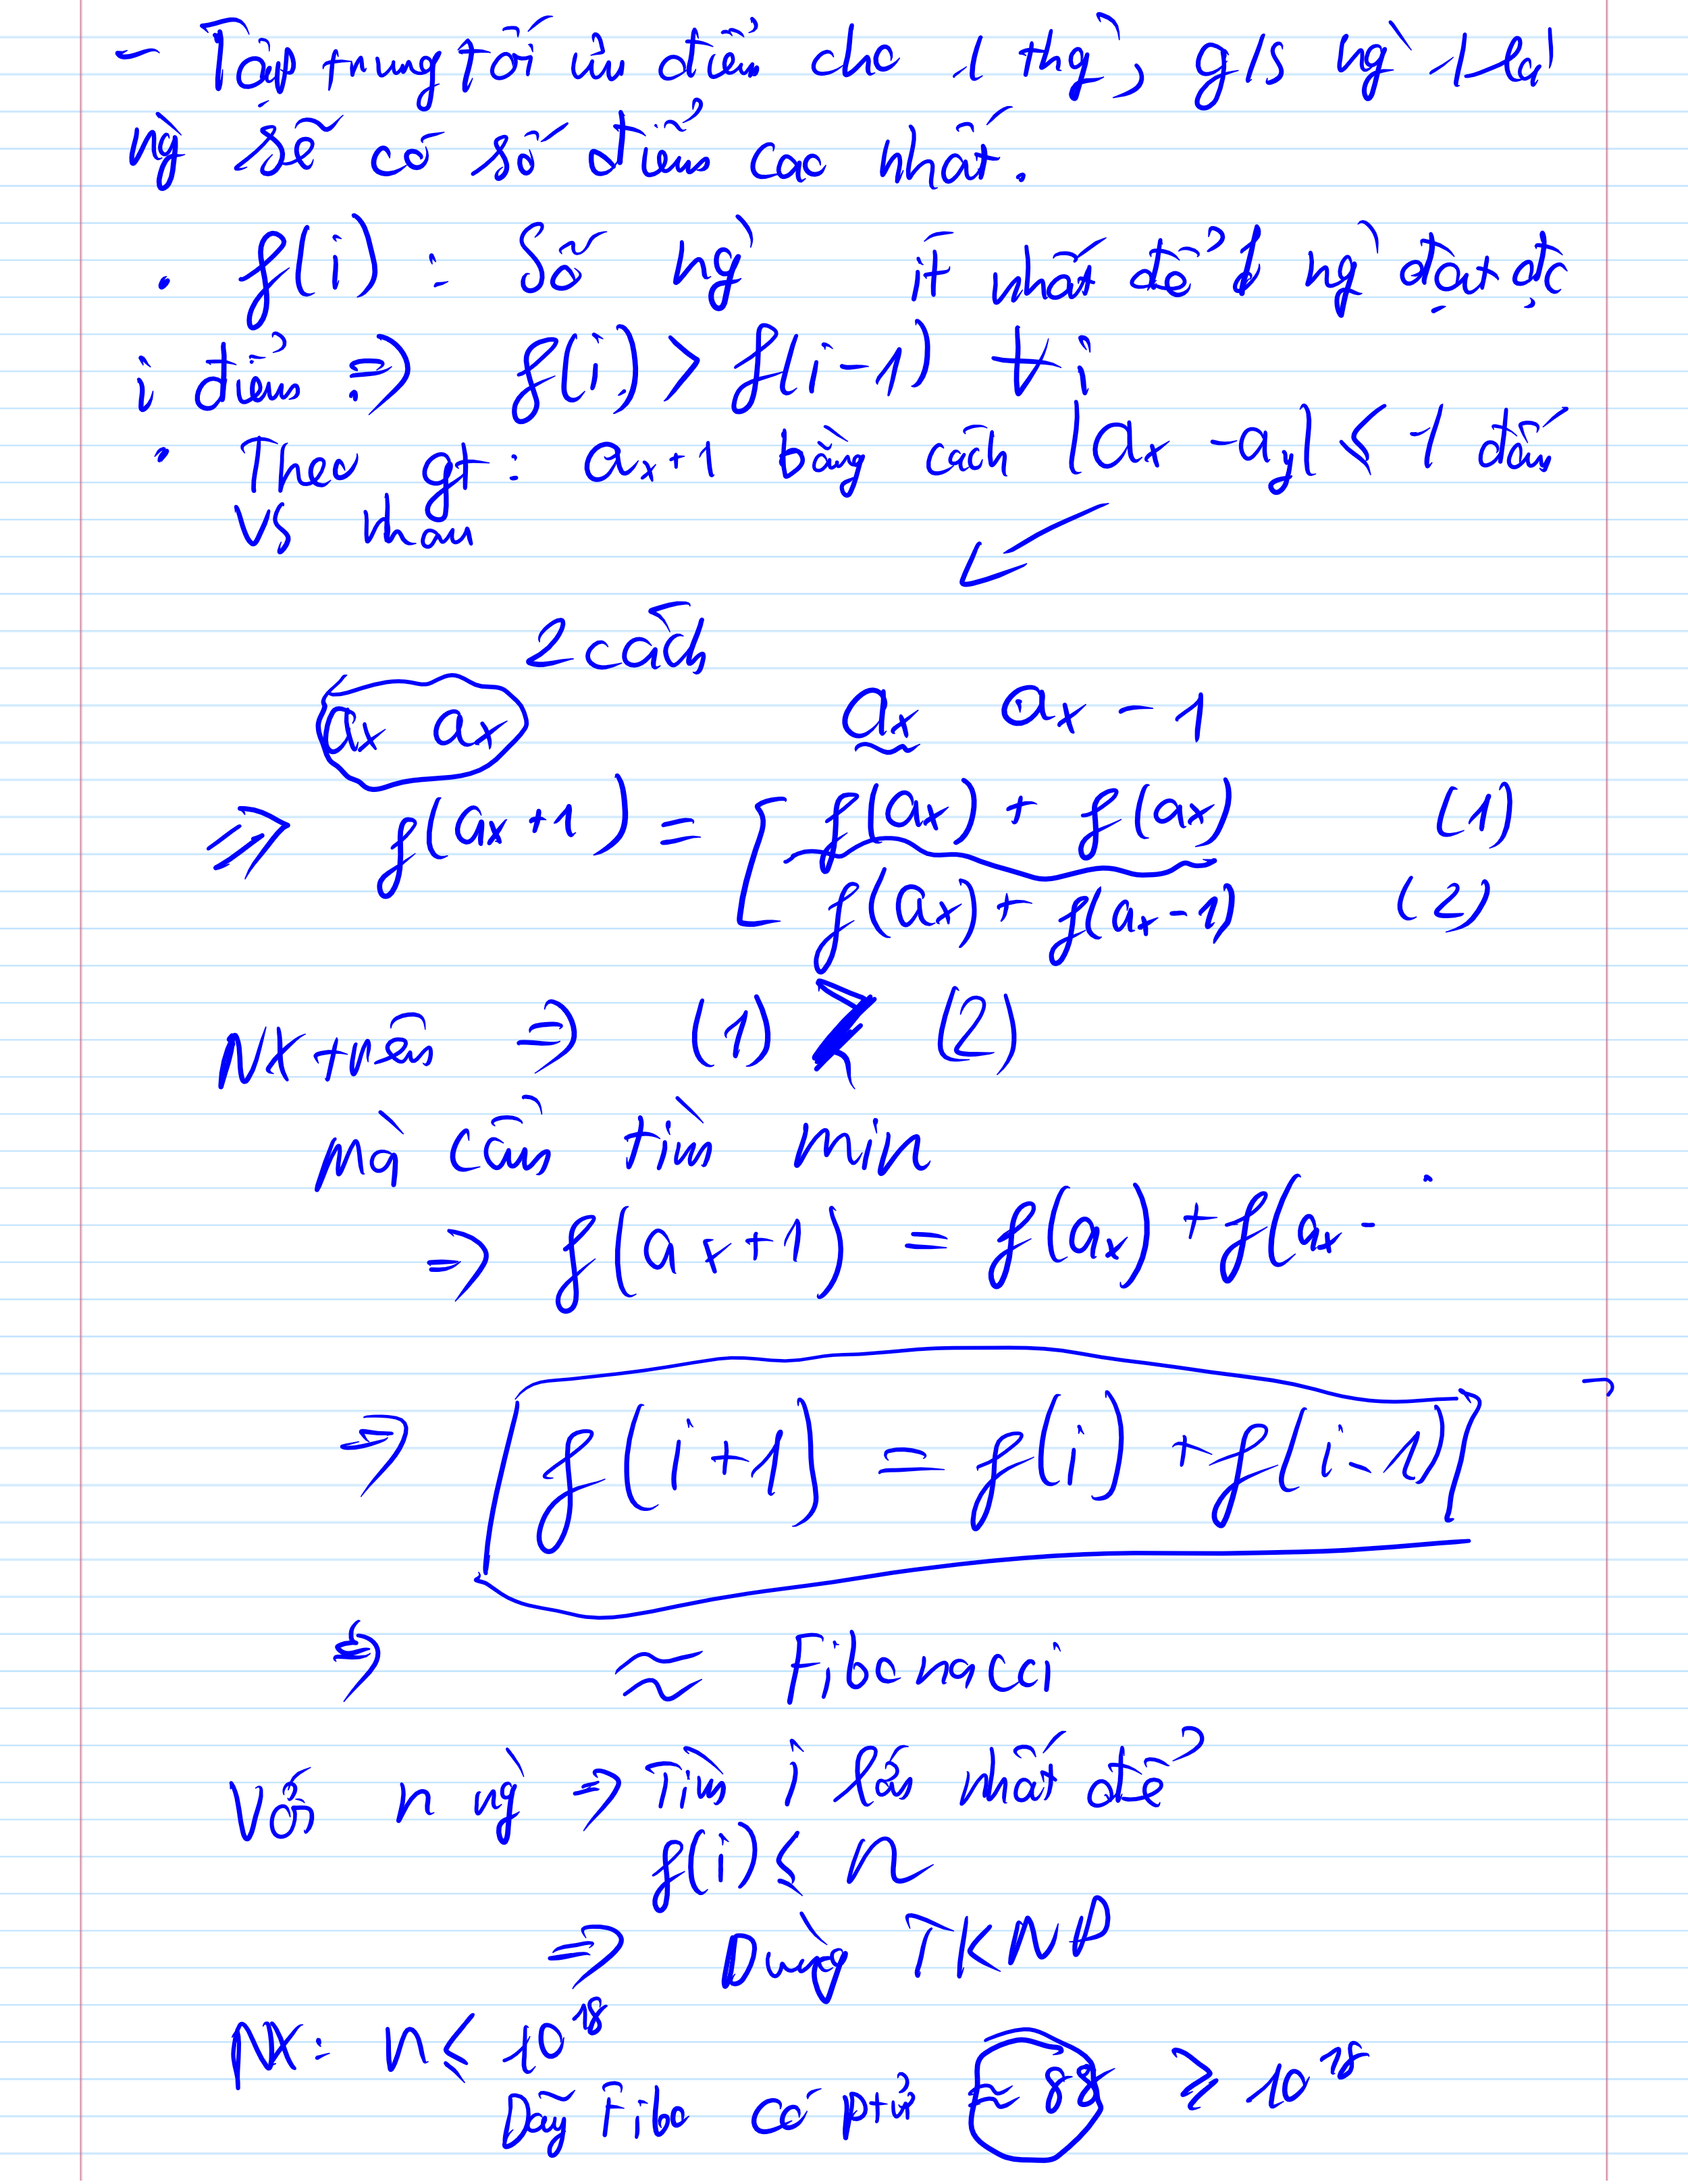 - Tập trung tối ưu điểm cho 1 thg`, g/s ng` 1 là
ng` sẽ có số điểm cao nhất.
. f(i) : Số ng` ít nhất để 1 ng` đạt đc
i điểm => f(i) > f(i-1) ∀i
. Theo gt: ax+1 bằng cách |ax - ay| ≤ 1 đấu
vs nhau
2 cách
ax ax ax ax - 1
=> f(ax+1) = [ f(ax) + f(ax) (1)
f(ax) + f(ax-1) (2)
NX trên => (1) > (2)
mà cần tìm min
=> f(ax+1) = f(ax) + f(ax -
=> f(i+1) = f(i) + f(i-1)
=> ≈ Fibonacci
Với n ng` => Tìm i lớn nhất để
f(i) ≤ n
=> Dùng TKNP
NX: n ≤ 10^18
Dãy Fibo có ptử ≈ 88 ≥ 10^18